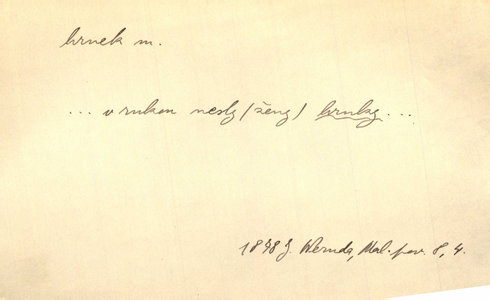 hrnek m.
... v rukou nesly (ženy) hrnky ...
1878 J. Neruda, Mal. pov. 8, 4.